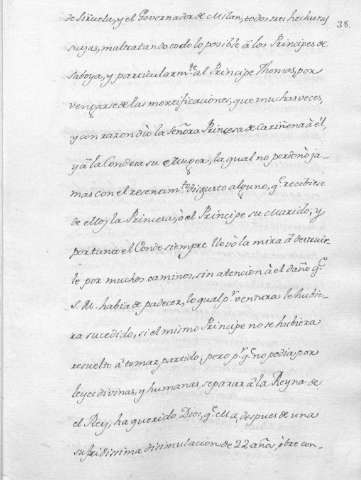 38.
de Siruela, y el Governador de Milan, todos tres hechuras
suyas, maltratando todo lo posible à los Principes de
Saboya, y particularm.te al Principe Thomas, por
vengarse de las mortificaciones, que muchas veces,
y con razon diò la Señora Princesa de Cariñan à èl,
y à la Condesa su Muger, la qual no perdonò ja-
mas con el resentim.to disgusto alguno, q.e recibiese
de ella la Princesa, ò el Principe su Marido, y
por tanto el Conde siempre llevò la mira à destruir-
le por muchos caminos, sin atencion à el daño q.e
S. M. habia de padecer, lo qual p.r ventura le hubie-
ra sucedido, si el mismo Principe no se hubiera
resuelto à tomar partido, pero p.r q.e no podia por
leyes divinas, y humanas separar à la Reyna de
el Rey, ha querido Dios, q.e ella despues de una
sufridissima disimulacion de 22 años, obre con-